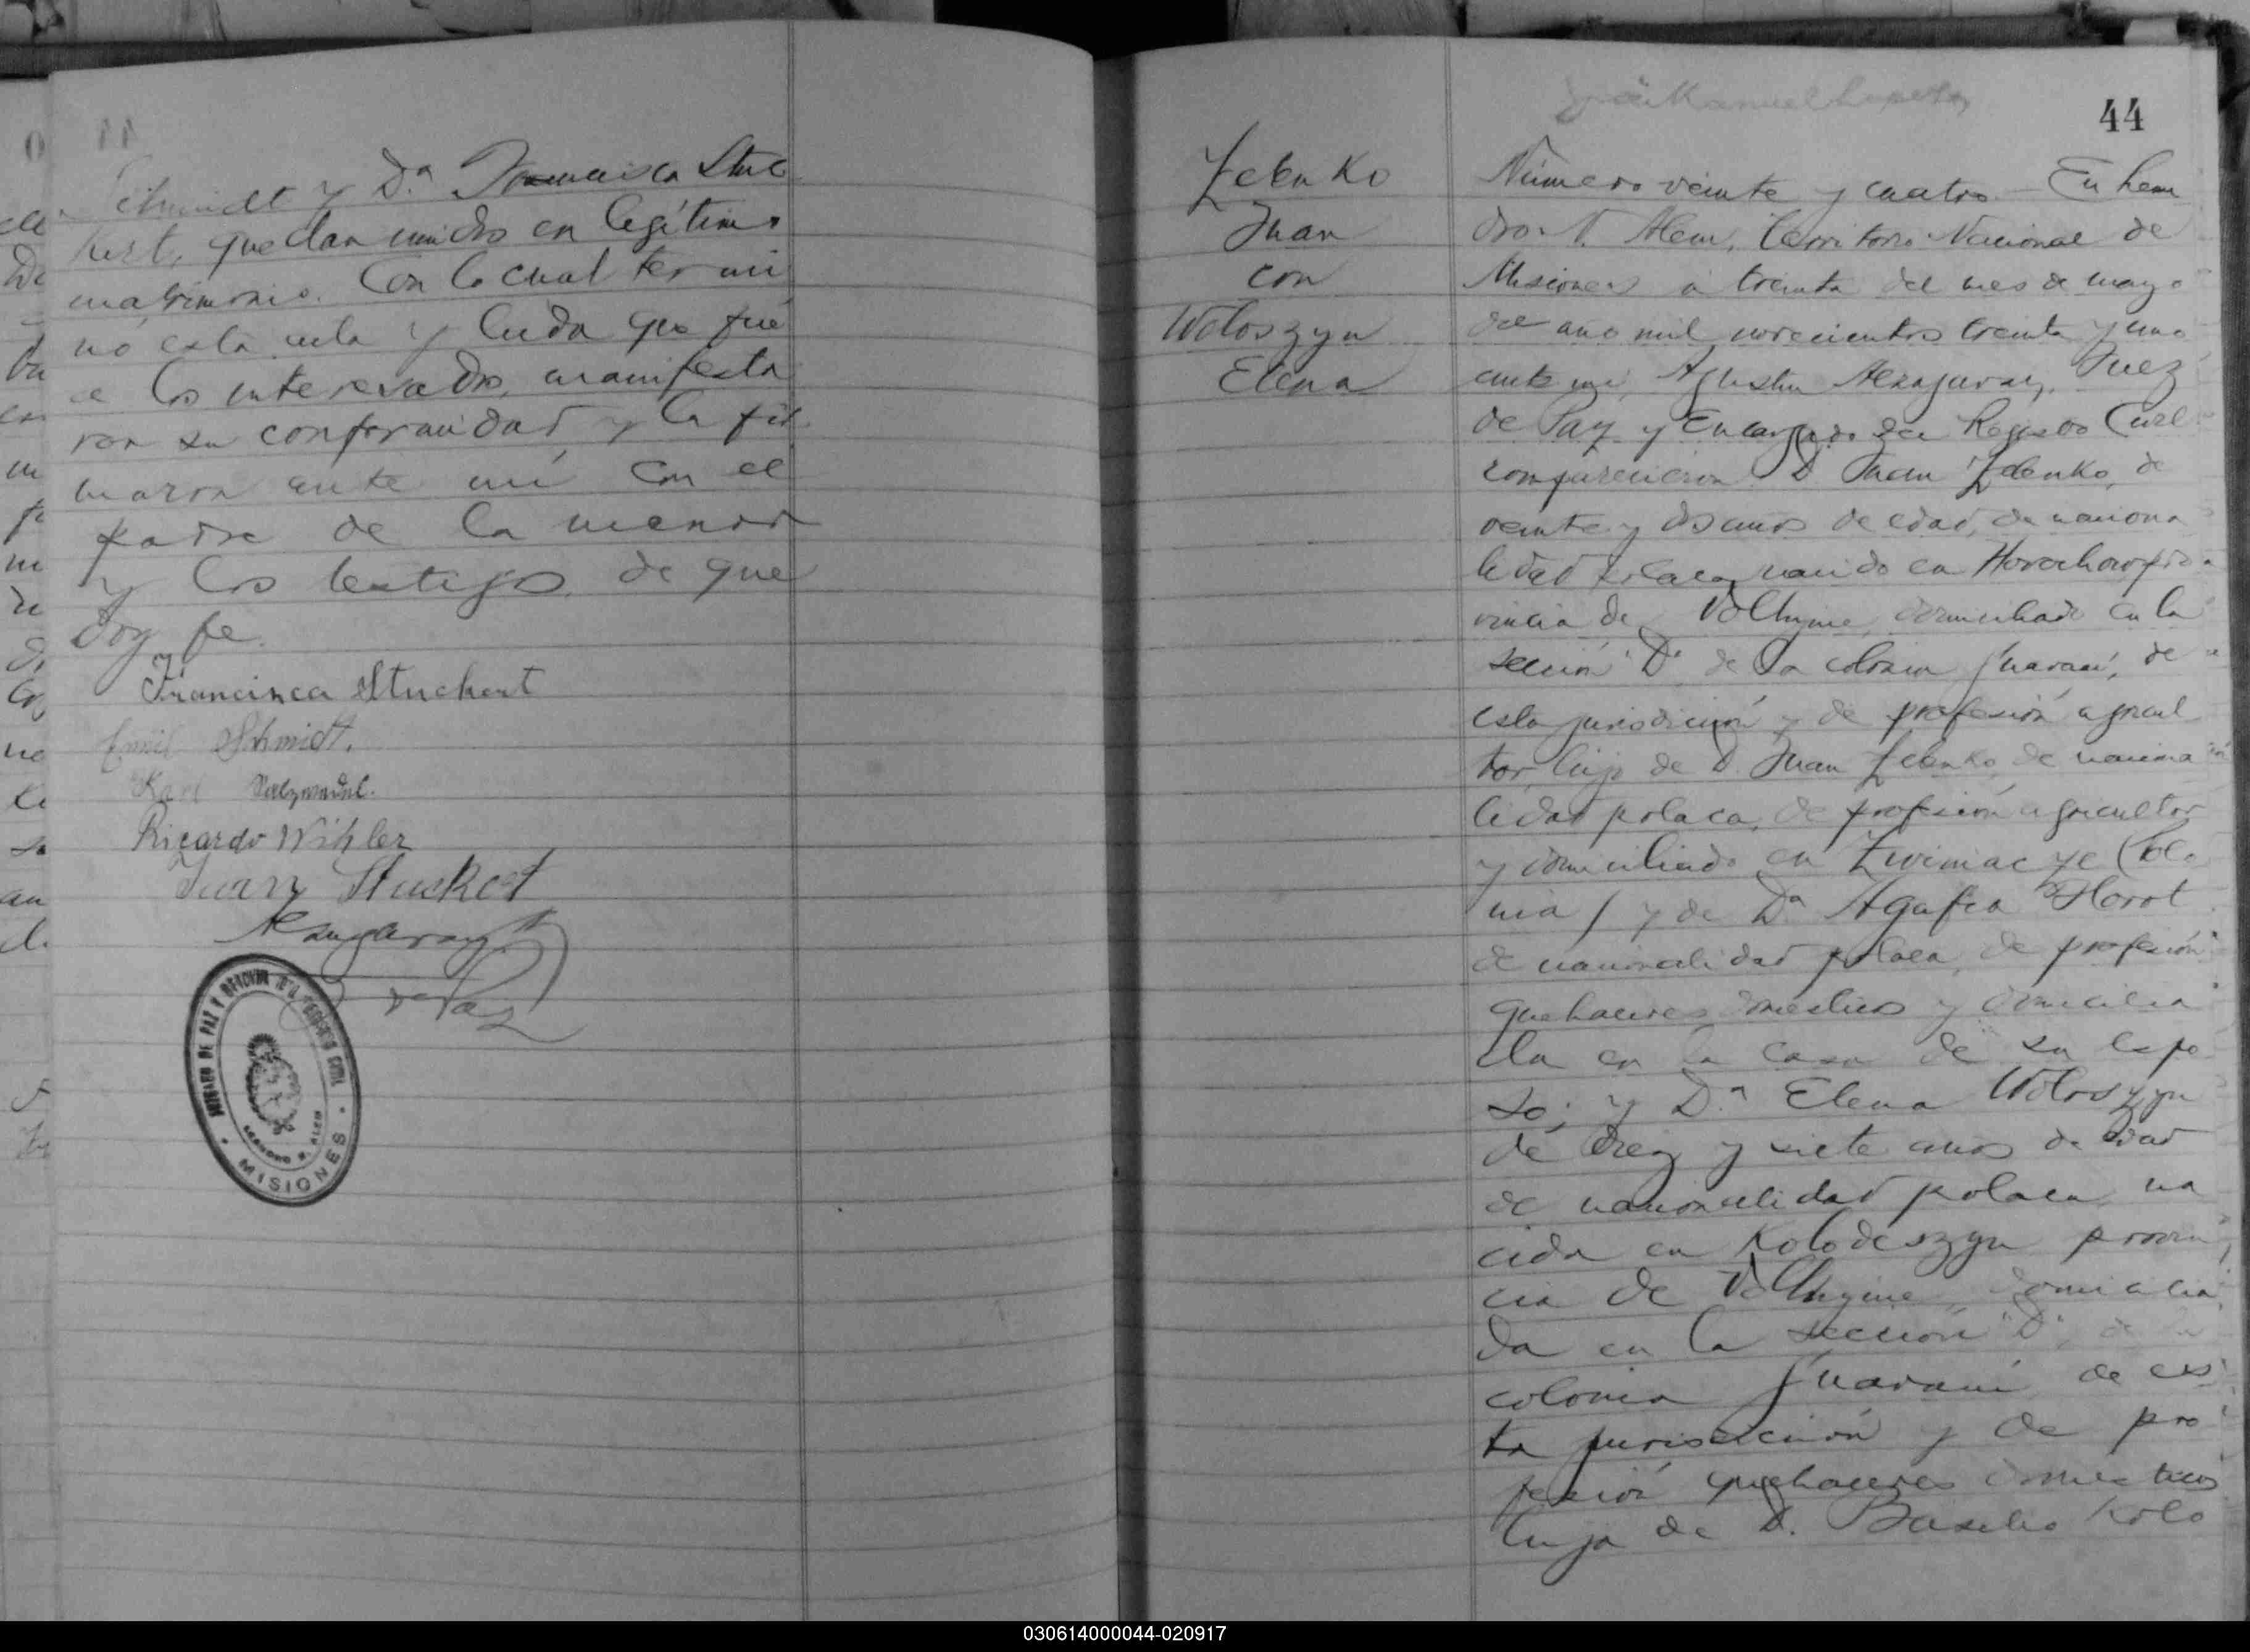 Schmidt y D.ª Francisca Stuc
kert, quedan unidos en legítimo
matrimonio. Con lo cual termi
nó esta acta y leida que fué
a los interesados, manifesta
ron su conformidad y la fir
maron ante mí con el
padre de la menor
y los testigos de que
doy fe.
Francisca Stuckert
Emil Schmidt.
Karl Salzwedel.
Ricardo Wihler
Juan Stuckert
J. de Paz
JUZGADO DE PAZ Y OFICINA DEL REGISTRO CIVIL
LEANDRO N. ALEM
MISIONES
44
Zelenko
Juan
con
Woloszyn
Elena
Número veinte y cuatro – En Lean
dro N. Alem, Territorio Nacional de
Misiones a treinta del mes de mayo
del año mil novecientos treinta y uno
ante mí, Agustin Alzagaray, Juez
de Paz y Encargado del Registro Civil
comparecieron D. Juan Zelenko, de
veinte y dos años de edad, de naciona
lidad polaca, nacido en pro
vincia de Volhynie, domiciliado en la
sección "D" de la colonia Guaraní, de
esta jurisdicción y de profesión agricul
tor, hijo de D. Juan Zelenko, de naciona
lidad polaca, de profesión agricultor
y domiciliado en (Polo
nia) y de Dª Agafia Horot
de nacionalidad polaca, de profesión
quehaceres domésticos y domicilia
da en la casa de su espo
so; y D.ª Elena Woloszyn
de diez y siete años de edad
de nacionalidad polaca, na
cida en Kolodeszyn provin
cia de Volhynie, domicilia
da en la sección "D" de la
colonia Guaraní de es
ta jurisdicción y de pro
fesión quehaceres domésticos
hija de D. Basilio Wolo
030614000044-020917